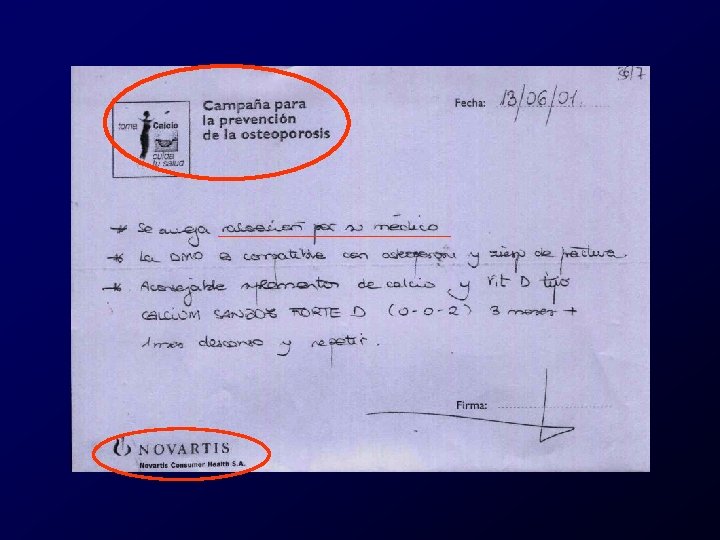 36/7
Campaña para
la prevención
de la osteoporosis
toma Calcio
cuida
tu salud
Fecha: 13/06/01
* Se aconseja valoración por su médico
* La DMO es compatible con osteoporosis y riesgo de fractura.
* Aconsejable suplementos de calcio y Vit D tipo
CALCIUM SANDOZ FORTE D (0-0-2) 3 meses +
1 mes descanso y repetir.
Firma:
NOVARTIS
Novartis Consumer Health S.A.